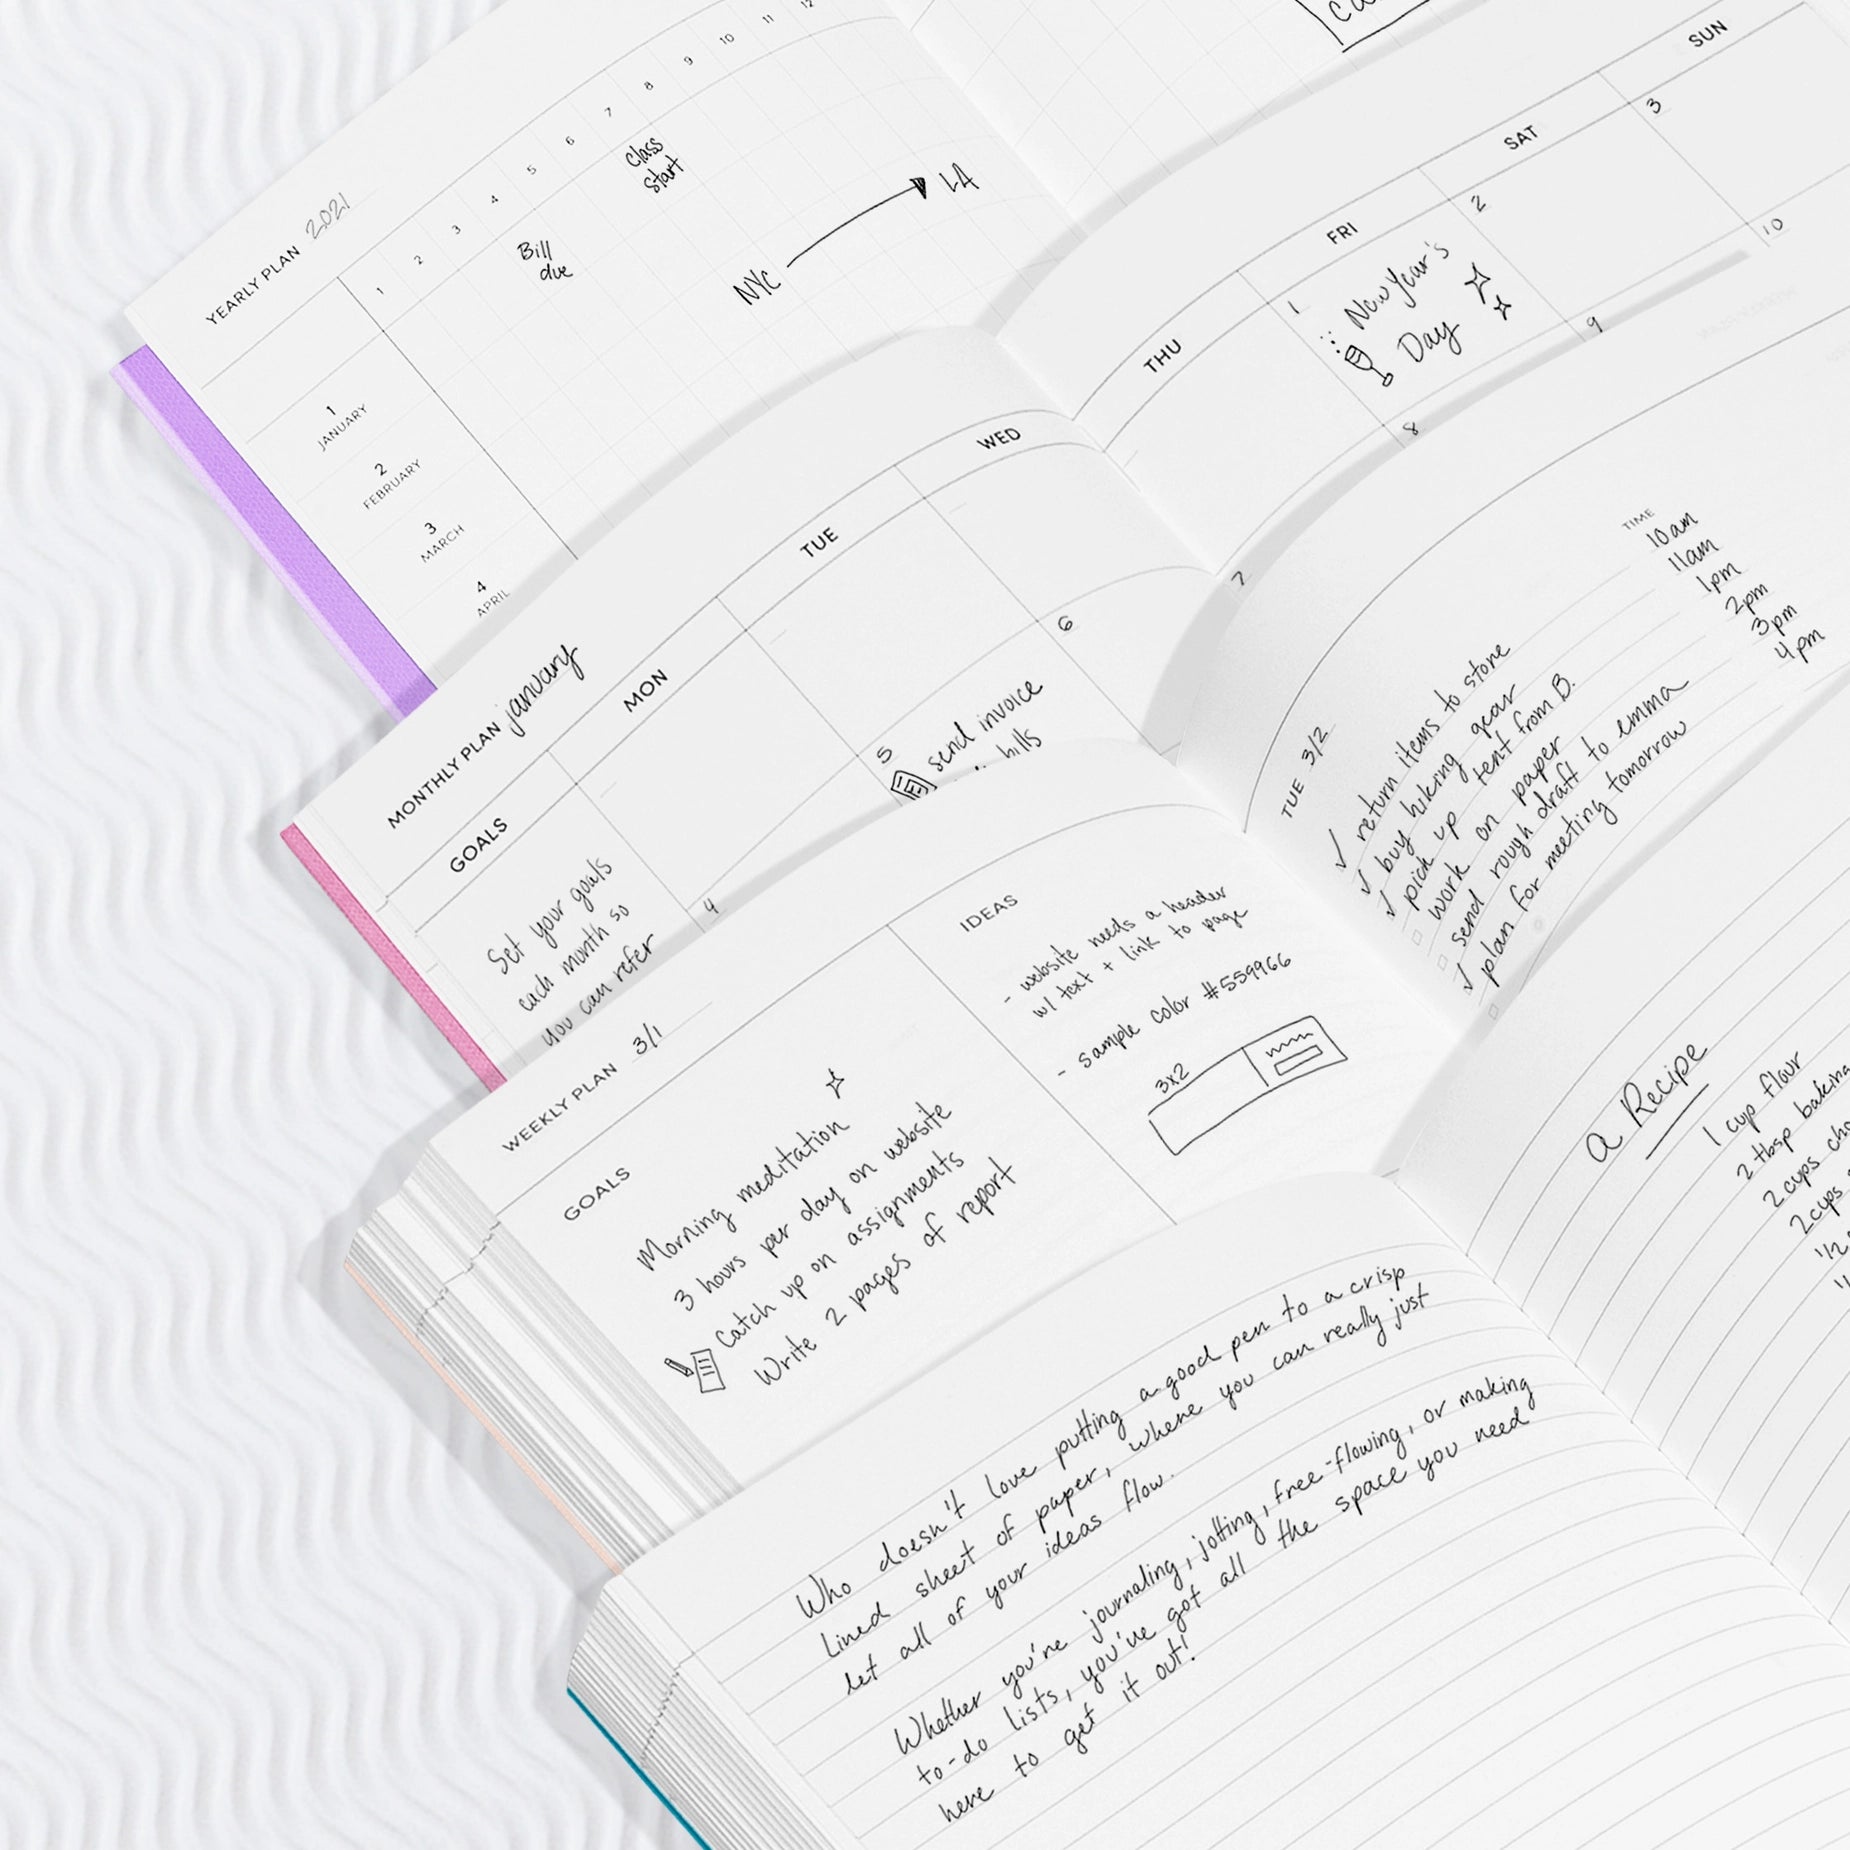 YEARLY PLAN 2021
1 2 3 4 5 6 7 8 9 10 11 12
1
JANUARY
2
FEBRUARY
3
MARCH
4
APRIL
Bill
due
Class
start
NYC
LA
MONTHLY PLAN january
GOALS MON TUE WED
Set your goals
each month so
you can refer
4
5
send invoice
bills
6
THU FRI SAT SUN
1
New Year's
Day
2
3
7
8
9
10
WEEKLY PLAN 3/1
GOALS
Morning meditation
3 hours per day on website
Catch up on assignments
Write 2 pages of report
IDEAS
- website needs a header
w/ text + link to page
- sample color #559966
3x2
TUE 3/2
TIME
✓ return items to store 10am
✓ buy hiking gear 11am
✓ pick up tent from B. 1pm
work on paper 2pm
send rough draft to emma 3pm
✓ plan for meeting tomorrow 4pm
Who doesn't love putting a good pen to a crisp
lined sheet of paper, where you can really just
let all of your ideas flow.
Whether you're journaling, jotting, free-flowing, or making
to-do lists, you've got all the space you need
here to get it out!
a Recipe
1 cup flour
2 tbsp baking
2 cups
2 cups
1/2